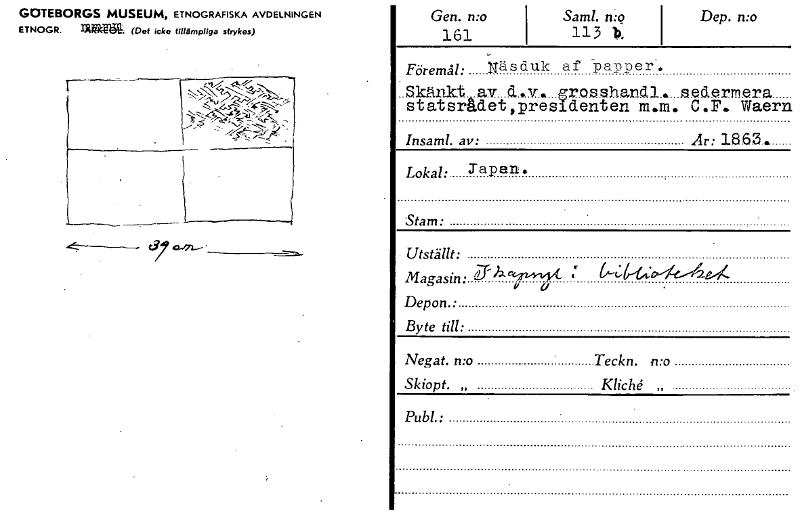 GÖTEBORGS MUSEUM, ETNOGRAFISKA AVDELNINGEN
ETNOGR. ARKEOL. (Det icke tillämpliga strykes)
39 cm
Gen. n:o Saml. n:o Dep. n:o
161 113 b.
Föremål: Näsduk af papper.
Skänkt av d.v. grosshandl. sedermera
statsrådet,presidenten m.m. C.F. Waern
Insaml. av: År: 1863.
Lokal: Japan.
Stam:
Utställt:
Magasin: i biblioteket
Depon.:
Byte till:
Negat. n:o Teckn. n:o
Skiopt. „ Kliché „
Publ.: